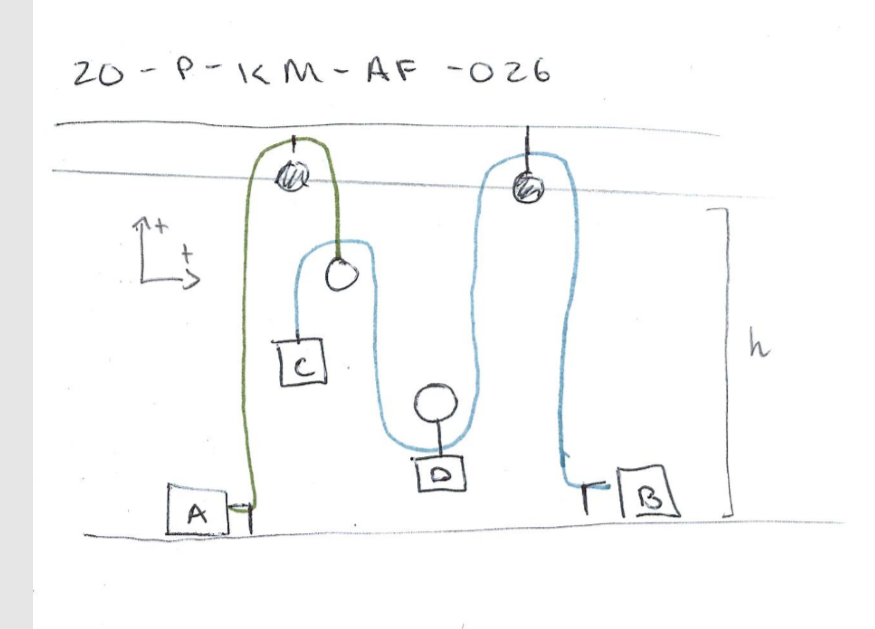 20-P-KM-AF-026
+
+
h
C
D
A
B